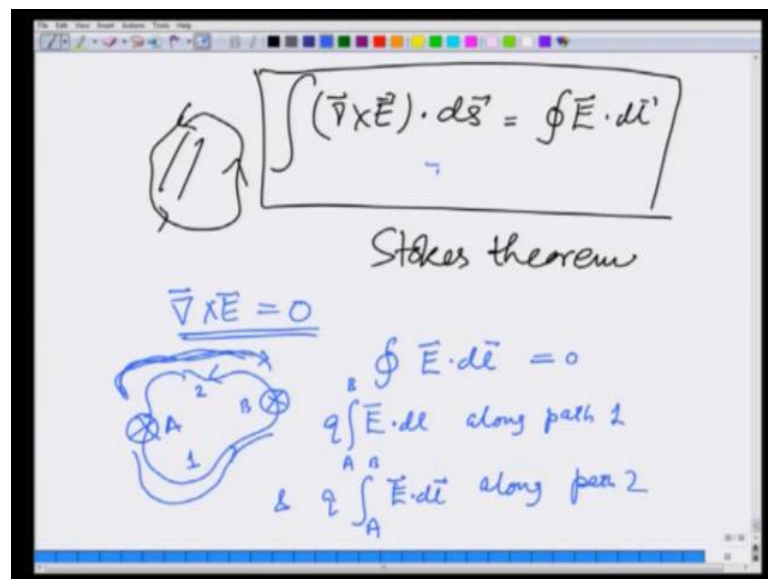 File Edit View Insert Actions Tools Help
∫(∇⃗×E⃗)·ds⃗ = ∮E⃗·dl⃗
Stokes theorem
∇⃗×E⃗ = 0
∮ E⃗·dl⃗ = 0
2
A
B
1
q∫_A^B E⃗·dl along path 1
& q∫_A^B E⃗·dl⃗ along path 2